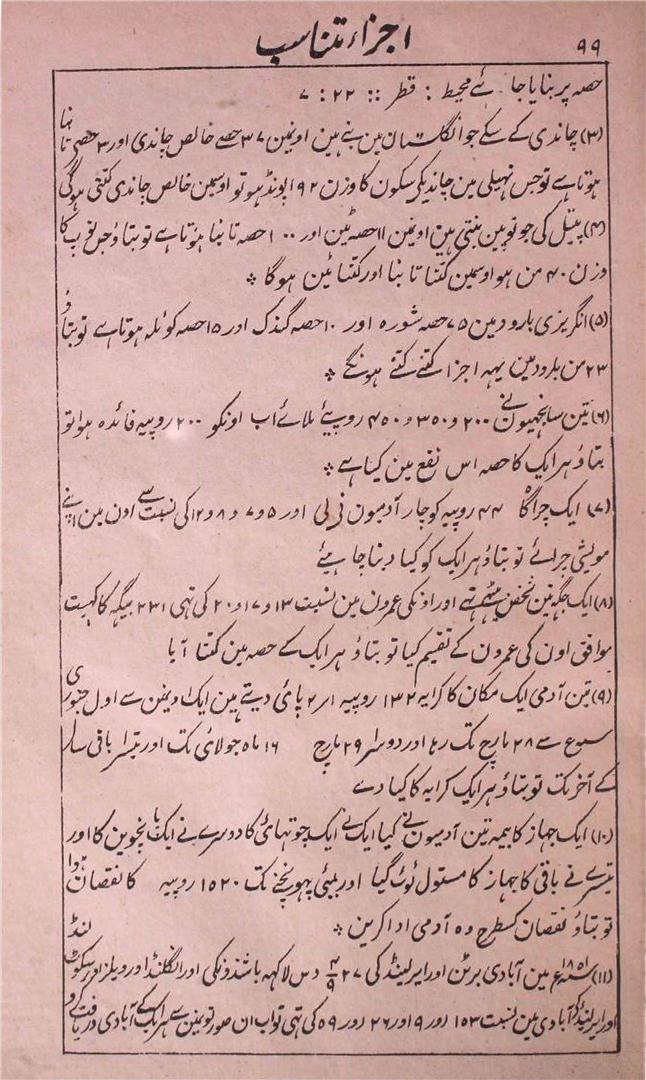 ۹۹
اجزاء متناسب
حصہ پر بنایا جائے محیط : قطر :: ۲۲ : ۷
(۳) چاندی کے سکے جو انگلستان مین بنے ہین اونمین ۳۷ حصے خالص چاندی اور ۳ حصہ تانبا
ہوتا ہے تو جس تہیلی مین چاندیکی سکون کا وزن ۱۹۲ پونڈ ہو تو اوسمین خالص چاندی کتنی ہوگی
(۴) پیتل کی جو توپین بنتی ہین اونمین ۱۱ حصہ ٹین اور ۱۰۰ حصہ تانبا ہوتا ہے تو بتاؤ جس توپ کا
وزن ۴۰ من ہو اوسمین کتنا تانبا اور کتنا ٹین ہوگا *
(۵) انگریزی بارود مین ۷۵ حصہ شورہ اور ۱۰ حصہ گندک اور ۱۵ حصہ کوئلہ ہوتا ہے تو بتاؤ
۲۳ من بارود مین یہہ اجزا کتنے کتنے ہونگے *
(۶) تین ساجھیون نے ۲۰۰ و ۳۵۰ و ۴۵۰ روپیئے ملائے اب اونکو ۲۰۰ روپیہ فائدہ ہوا تو
بتاؤ ہر ایک کا حصہ اس نفع مین کیا ہے *
(۷) ایک چراگاہ ۴۴ روپیہ کو چار آدمیون نی لی اور ۵ و ۷ و ۸ و ۱۲ کی نسبت سے اون مین اپنے
مویشی چرائے تو بتاؤ ہر ایک کو کیا دینا چاہیئے
(۸) ایک جگہ تین شخص بیٹھے تہے اور اونکی عمرون مین نسبت ۱۳ و ۱۷ و ۲۰ کی تہی ۲۳۱ بیگہ کا کہیت
موافق اون کی عمرون کے تقسیم کیا تو بتاؤ ہر ایک کے حصہ مین کتنا آیا
(۹) تین آدمی ایک مکان کا کرایہ ۱۳۲ روپیہ ۱ر ۲ پائی دیتے ہین ایک اونمین سے اول جنوری
سے ۲۸ مارچ تک رہا اور دوسرا ۲۹ مارچ ۱۶ ماہ جولائی تک اور تیسرا باقی سال
کے آخر تک تو بتاؤ ہر ایک کرایہ کا کیا دے
(۱۰) ایک جہاز کا بیمہ تین آدمیون نے کیا ایک نے ایک چوتھائی کا دوسرے نے ایک پانچوین کا اور
تیسرے نے باقی کا جہاز کا مستول ٹوٹ گیا اور بمبئی پہونچنے تک ۱۵۲۰ روپیہ کا نقصان ہوا
تو بتاؤ نقصان کسطرح وہ آدمی ادا کرین *
(۱۱) ۱۸۵۱ع مین آبادی برٹن اور ایرلینڈ کی ۲۷ ۴/۹ دس لاکہہ باشندونکی اور انگلنڈ اور ویلز اور سکوٹ لنڈ
اور ایرلینڈ کی آبادی مین نسبت ۱۵۳ اور ۹ اور ۲۶ اور ۵۹ کی تہی تو اب ان صورتون مین سے ہر ایک کے آبادی دریافت کرو